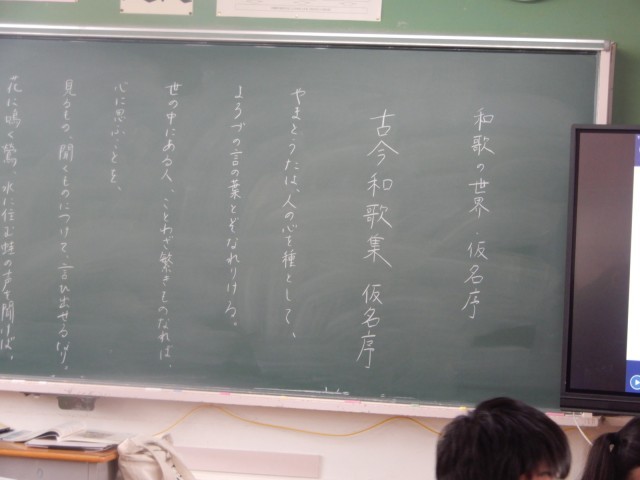 和歌の世界・仮名序
古今和歌集 仮名序
やまとうたは、人の心を種として、
よろづの言の葉とぞなれりける。
世の中にある人、ことわざ繁きものなれば、
心に思ふことを、
見るもの、聞くものにつけて、言ひ出せるなり。
花に鳴く鶯、水に住む蛙の声を聞けば、